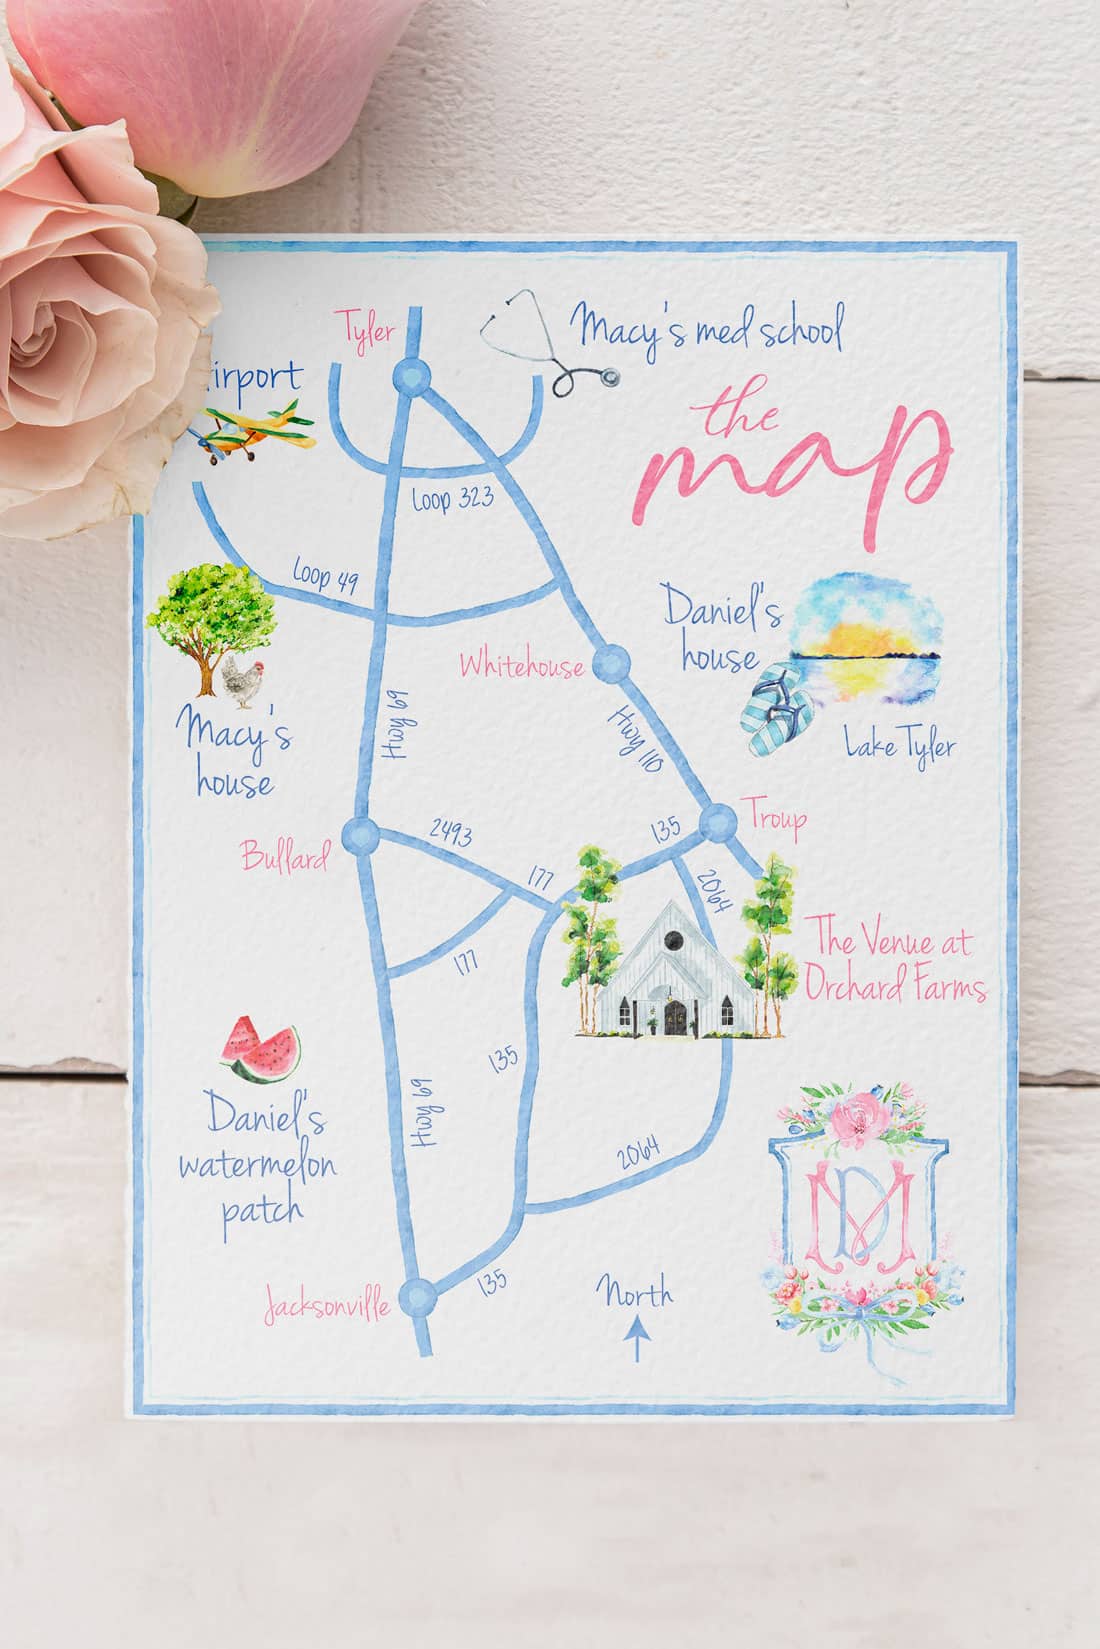 Tyler
Macy's med school
irport
the
map
Loop 323
Loop 49
Daniel's
house
Whitehouse
Lake Tyler
Macy's
house
Hwy 69
Hwy 110
Troup
135
2493
Bullard
177
2064
The Venue at
Orchard Farms
177
135
Hwy 69
Daniel's
watermelon
patch
2064
MDM
North
Jacksonville
135